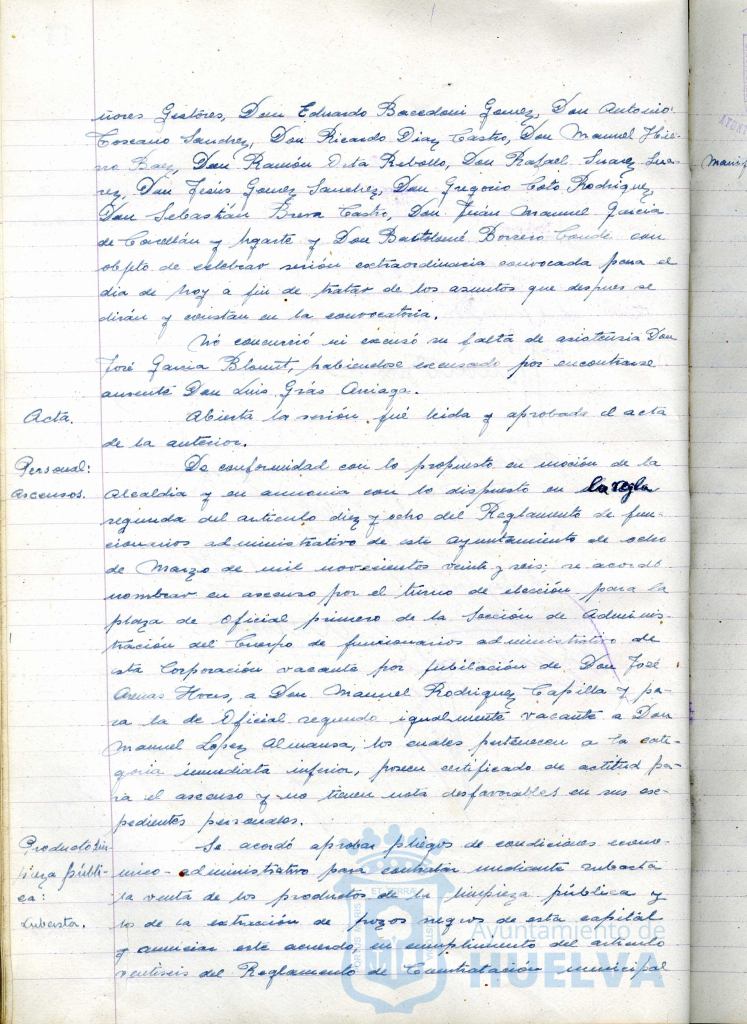 ñores Gestores, Don Eduardo Bacedoni Gomez, Don Antonio
Toscano Sanchez, Don Ricardo Diaz Castro, Don Manuel Hie-
rro Baez, Don Ramón Orta Rebollo, Don Rafael Suarez Sua-
rez, Don Jesús Gomez Sanchez, Don Gregorio Coto Rodriguez,
Don Sebastián Brera Castro, Don Juan Manuel Garcia
de Castellán y Ugarte y Don Bartolomé Borrero Conde con
objeto de celebrar sesión extraordinaria convocada para el
dia de hoy a fin de tratar de los asuntos que despues se
dirán y constan en la convocatoria.
No concurrió ni excusó su falta de asistensia Don
José Garcia Blount, habiendose excusado por encontrarse
ausente Don Luis Grás Arriaga.
Acta.
Abierta la sesión fué leida y aprobada el acta
de la anterior.
Personal:
ascensos.
De conformidad con lo propuesto en moción de la
Alcaldia y en armonia con lo dispuesto en la regla
segunda del articulo diez y ocho del Reglamento de fun-
cionarios administrativo de este Ayuntamiento de ocho
de Marzo de mil novecientos veinte y seis; se acordó
nombrar en ascenso por el turno de elección para la
plaza de Oficial primero de la Sección de Adminis-
tración del Cuerpo de funcionarios administrativo de
esta Corporación vacante por jubilación de Don José
Arenas Hoces, a Don Manuel Rodriguez Capilla y pa-
ra la de Oficial segundo igualmente vacante a Don
Manuel Lopez Almansa, los cuales pertenecen a la cate-
goria inmediata inferior, poseen certificado de actitud pa-
ra el ascenso y no tienen nota desfavorables en sus ex-
pedientes personales.
Producto lim-
pieza públi-
ca:
Subasta.
Se acordó aprobar pliegos de condiciones econo-
mico-administrativo para contratar mediante subasta
la venta de los productos de la limpieza pública y
los de la extracción de pozos negros de esta capital
y anunciar este acuerdo, en cumplimento del articulo
ventiseis del Reglamento de Contratación municipal
Ayuntamiento de
HUELVA